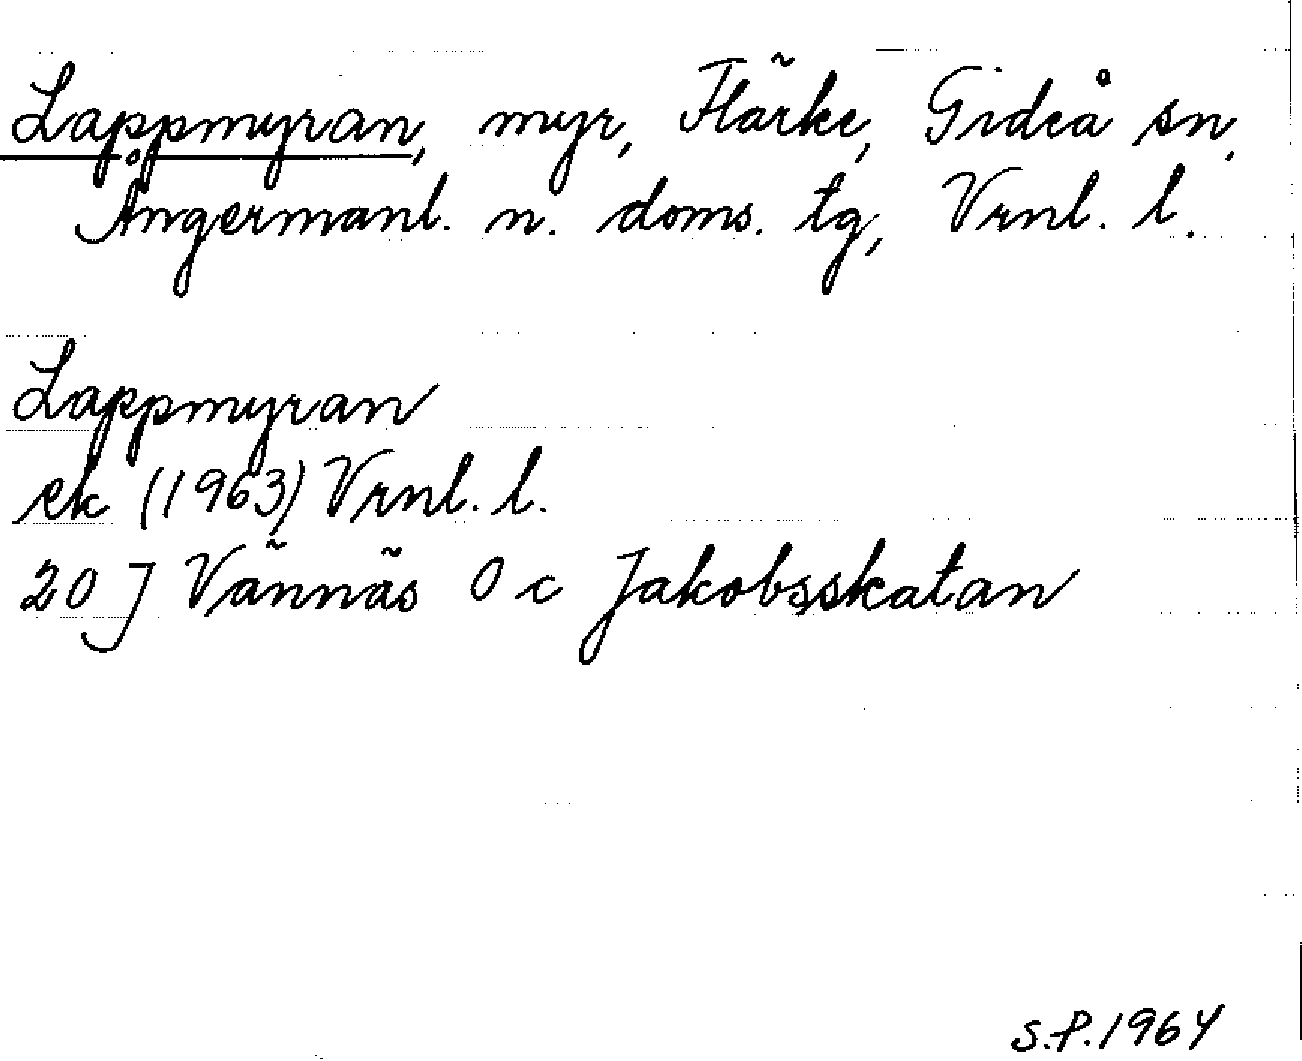 Lappmyran, myr, Flärke, Gideå sn,
Ångermanl. n. doms. tg, Vrnl. l.
Lappmyran
ek (1963) Vrnl. l.
20 J Vännäs 0 c Jakobsskatan
S.P. 1964